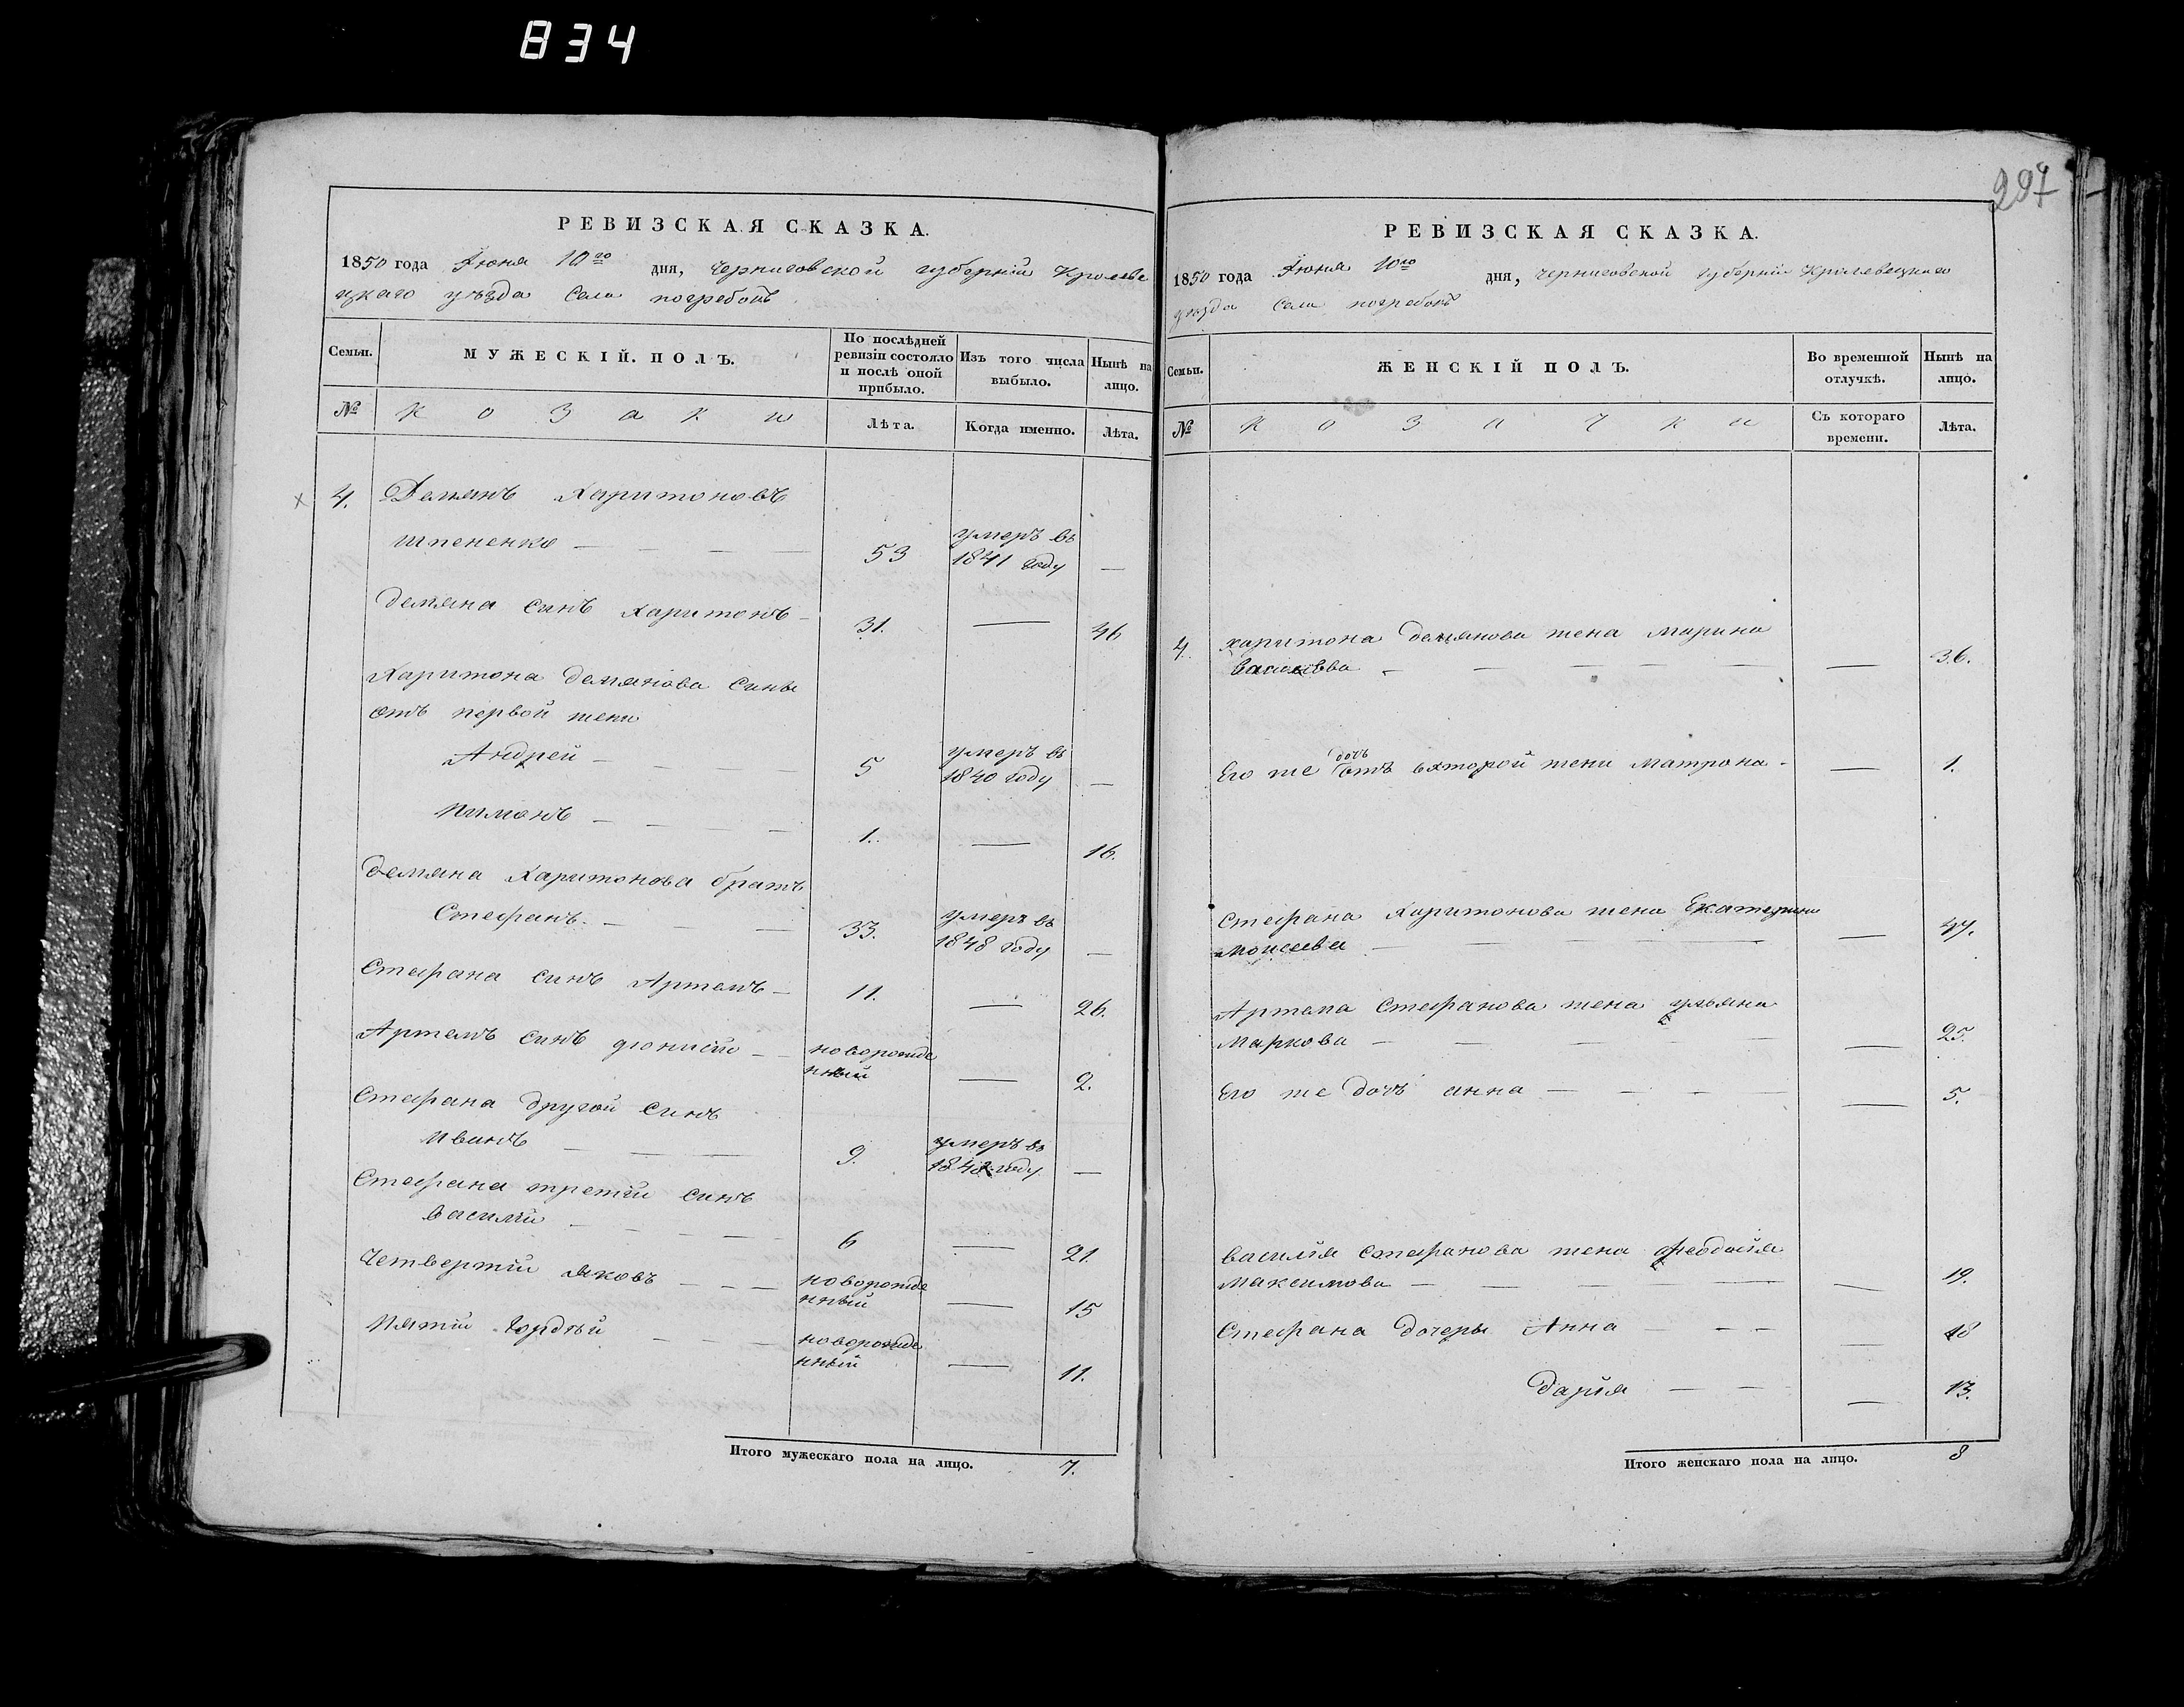 834
297
РЕВИЗСКАЯ СКАЗКА.
1850 года Июня 10го дня, Черниговской губерніи Кролеве
цкаго уѣзда Села погребокъ
Семьи. МУЖЕСКІЙ ПОЛЪ. По послѣдней ревизіи состояло и послѣ оной прибыло. Изъ того числа выбыло. Нынѣ на лицо.
№ Козаки Лѣта. Когда именно. Лѣта.
4. Демянъ Харитоновъ
шпененко — 53 умеръ въ 1841 году —
демяна синъ харитонъ — 31. — 46
Харитона демянова сины
отъ первой жени
Андрей — 5 умеръ въ 1840 году —
Пимонъ — 1. — 16.
демяна Харитонова братъ
Стефанъ — 33. умеръ въ 1848 году —
Стефана синъ Артемъ — 11. — 26.
Артемъ синъ діонисій — новорожденный — 2.
Стефана другой синъ
Иванъ — 9. умеръ въ 1848 году —
Стефана третій синъ
василій — 6 — 21.
Четвертій яковъ — новорожденный — 15
Пятій Гордѣй — новорожденный — 11.
Итого мужескаго пола на лицо. 7.
РЕВИЗСКАЯ СКАЗКА.
1850 года Июня 10го дня, Черниговской губерніи Кролевецкаго
уѣзда Села погребокъ
Семьи. ЖЕНСКІЙ ПОЛЪ. Во временной отлучкѣ. Нынѣ на лицо.
№ Козачки Съ котораго времени. Лѣта.
4. харитона демянова жена Марина
— — 36.
Его же дочь отъ второй жени Матрона — — 1.
Стефана Харитонова жена Екатерина
Моисеева — — 47.
Артема Стефанова жена ульяна
Маркова — — 25.
Его же дочь анна — — 5.
василія Стефанова жена феодосія
Максимова — — 19.
Стефана дочеры Анна — — 18
дарія — — 13.
Итого женскаго пола на лицо. 8